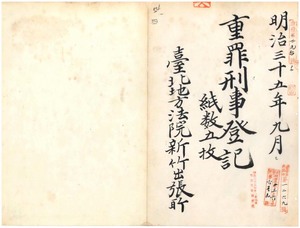 明治三十五年九月
重罪刑事登記
紙数五枚
臺北地方法院新竹出張所